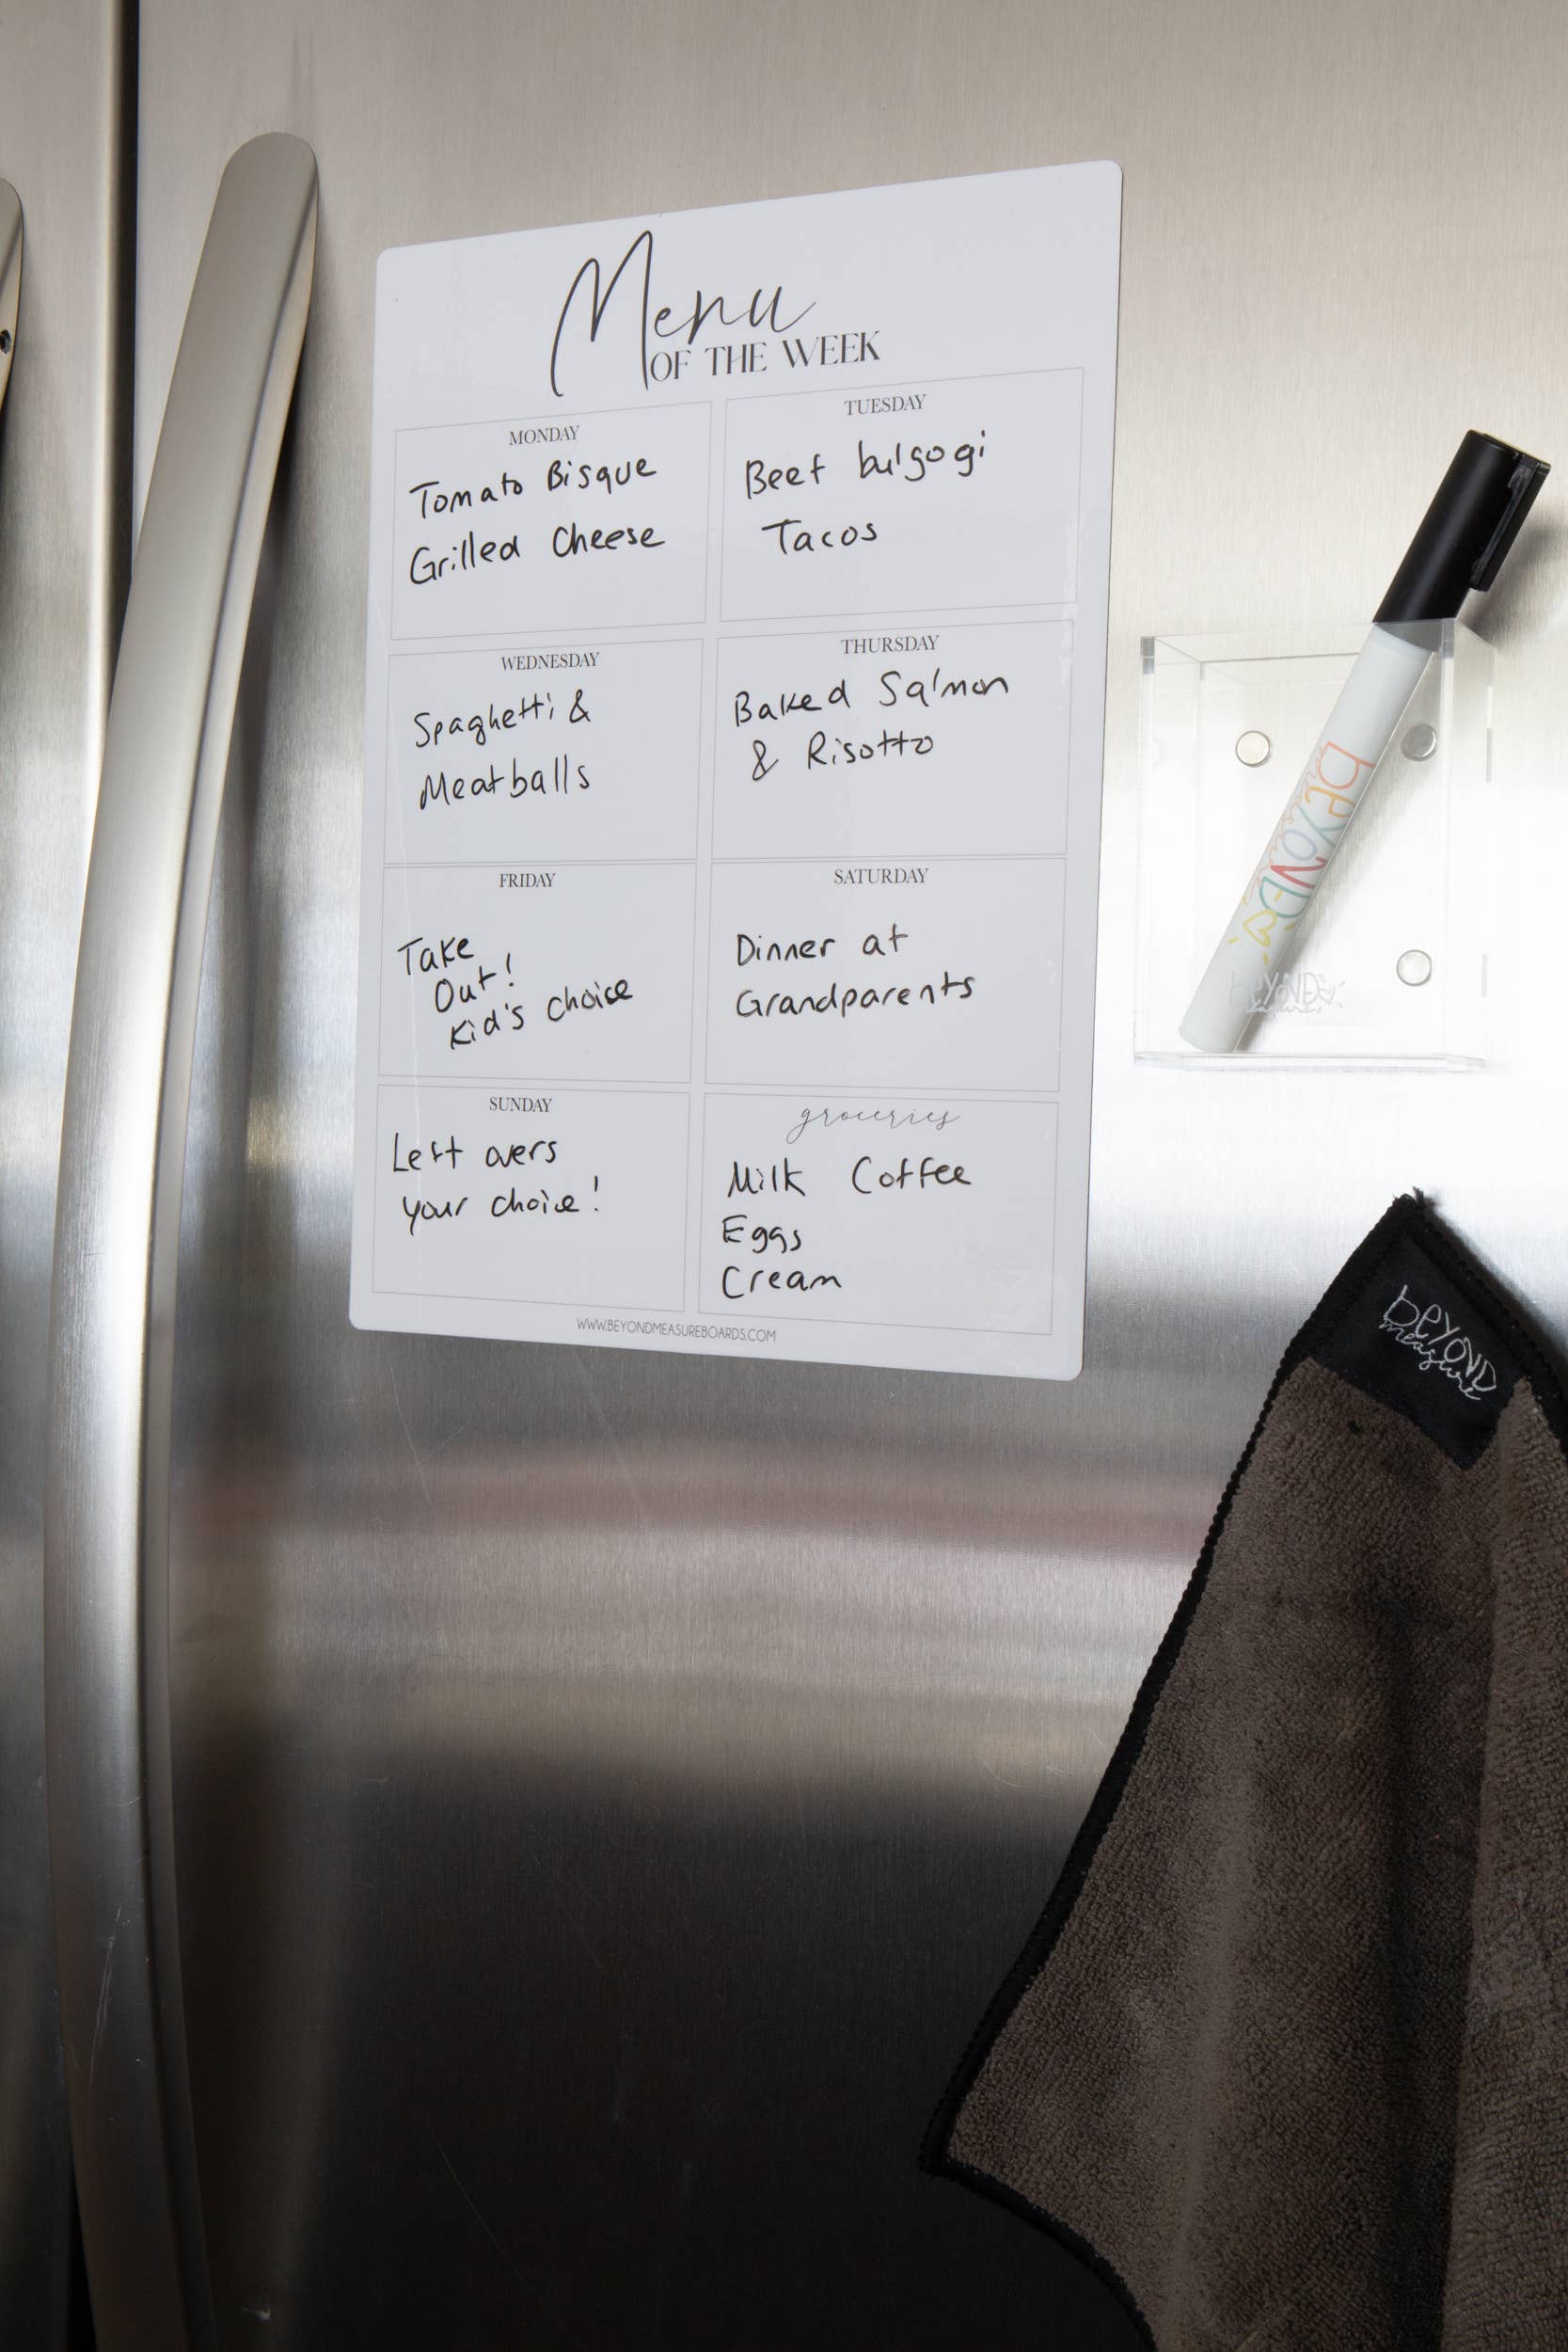 Menu
OF THE WEEK
MONDAY
Tomato Bisque
Grilled Cheese
TUESDAY
Beef bulgogi
Tacos
WEDNESDAY
Spaghetti &
Meatballs
THURSDAY
Baked Salmon
& Risotto
FRIDAY
Take
Out!
Kid's choice
SATURDAY
Dinner at
Grandparents
SUNDAY
Left overs
your choice!
groceries
Milk Coffee
Eggs
Cream
WWW.BEYONDMEASUREBOARDS.COM
beYOND
measure
beYOND
measure
beYOND
measure